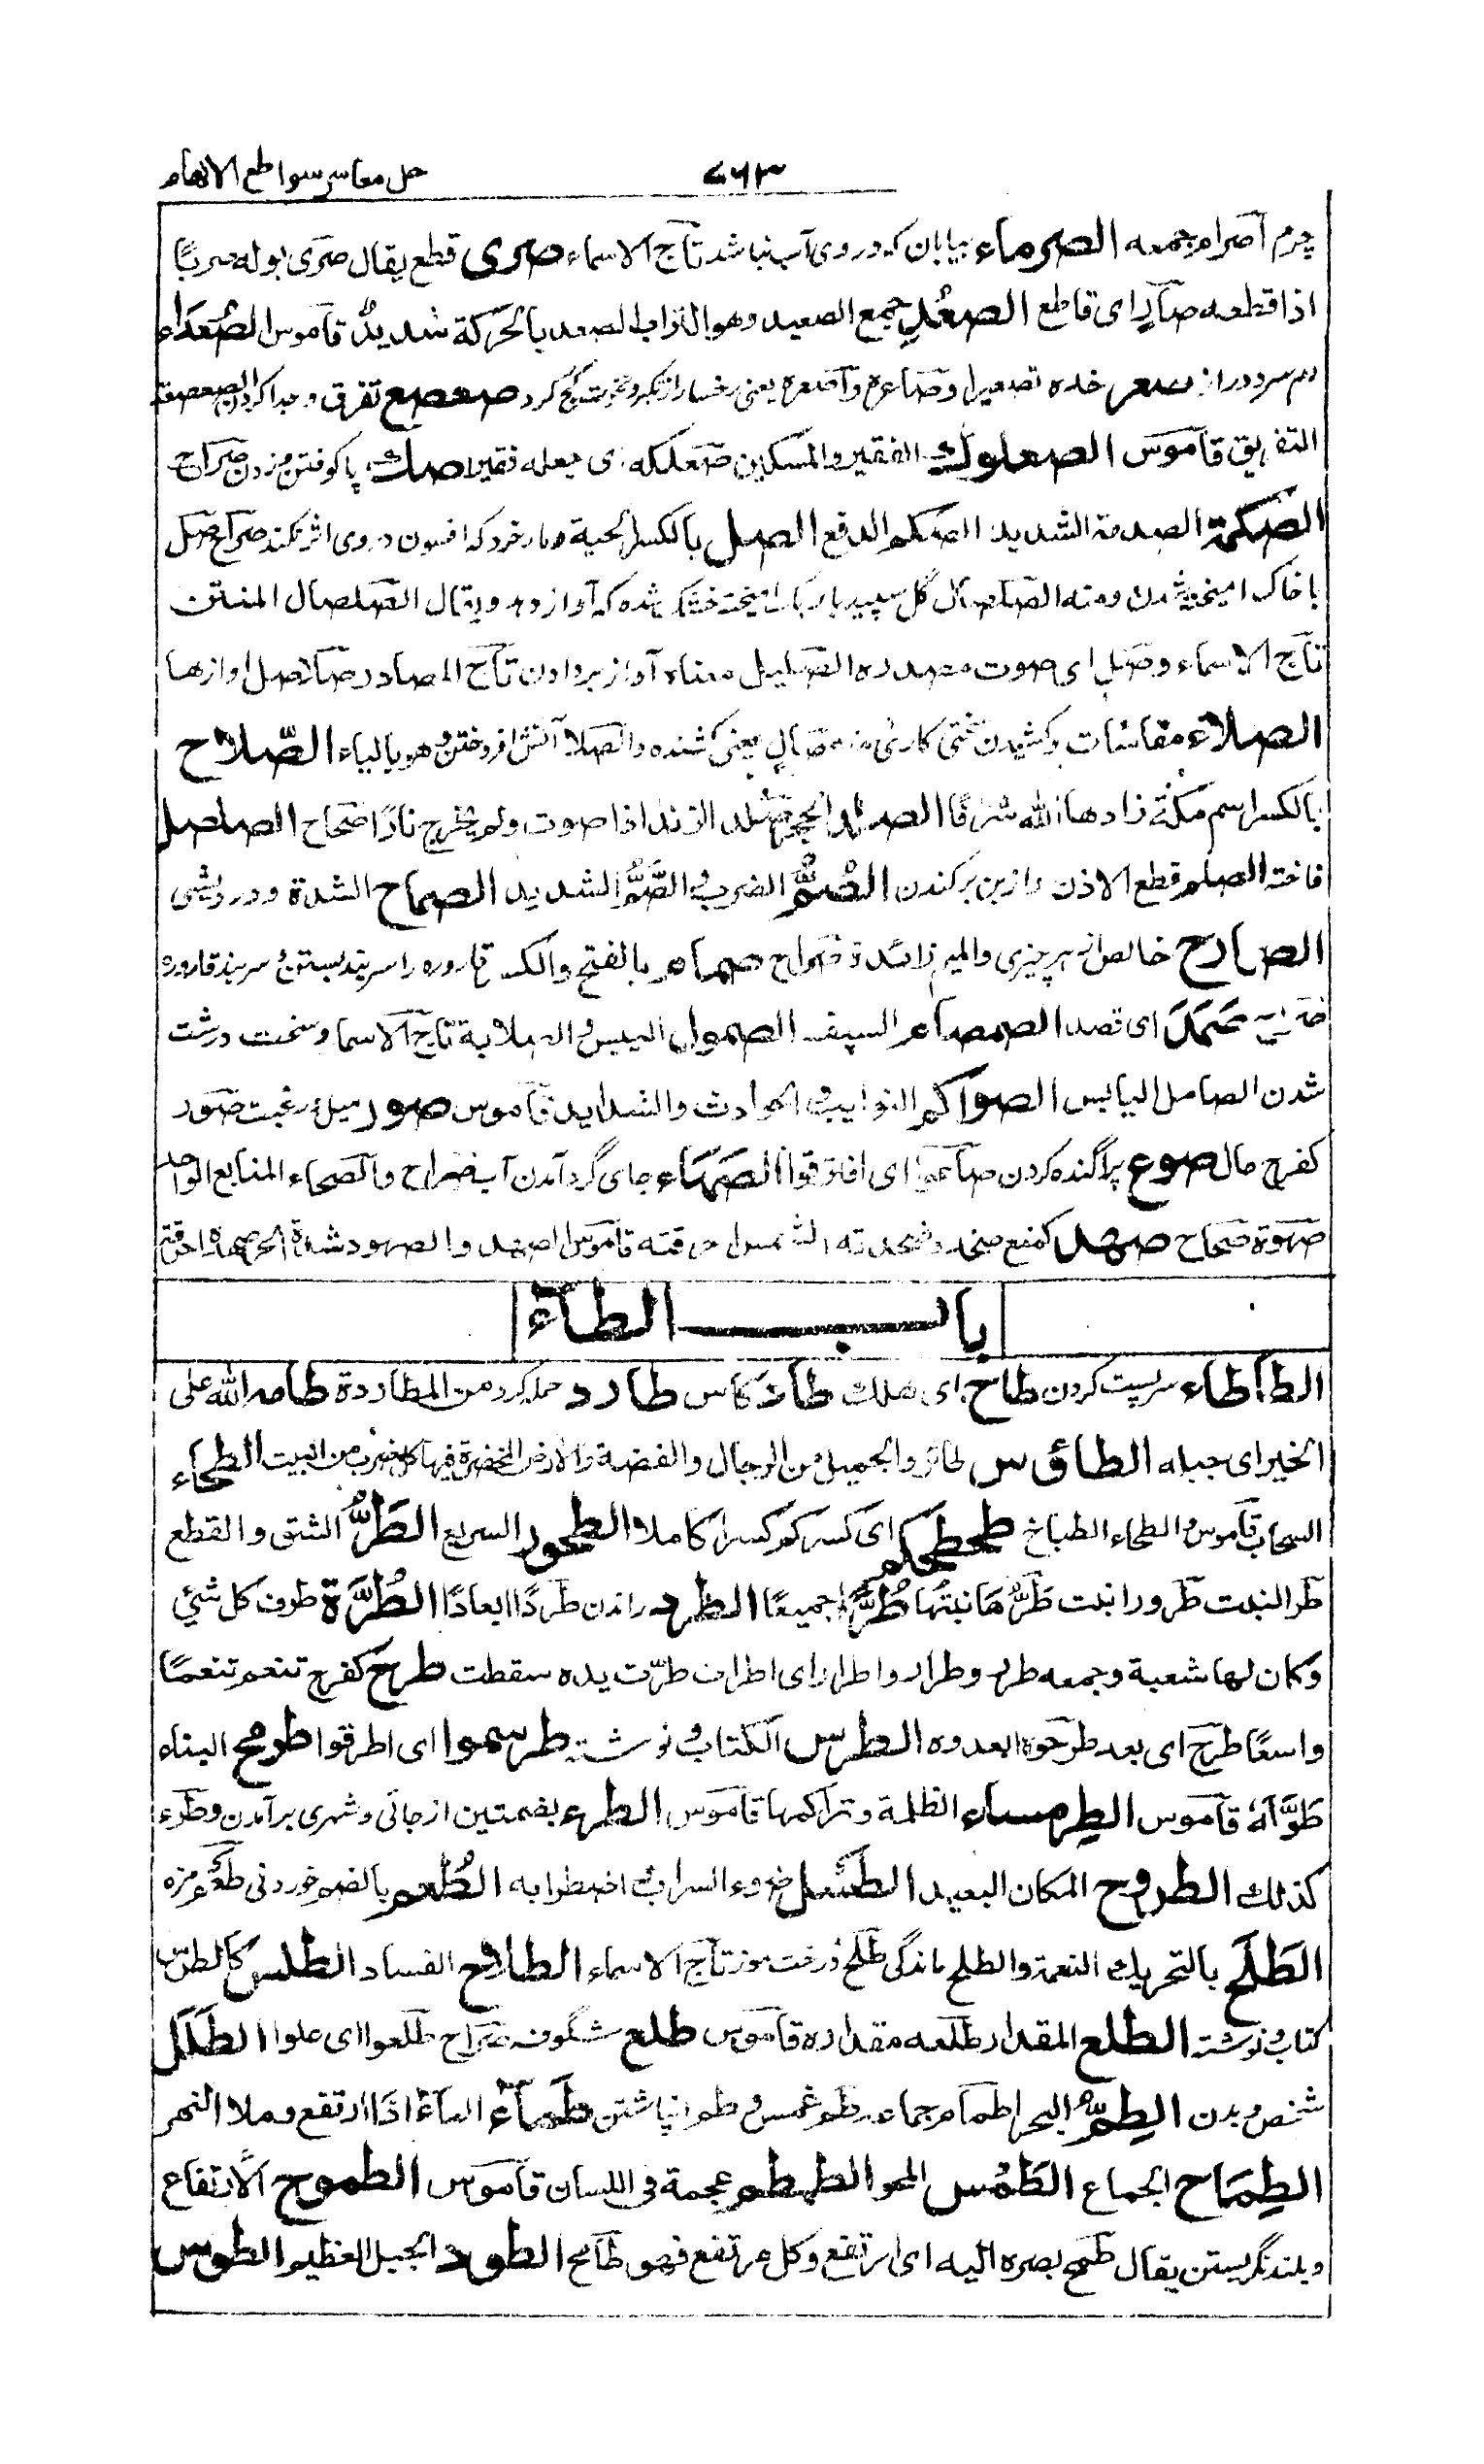 حل معاسر سواطع الالهام
۷۶۳
چرم اصرام جمعه الصرماء بیابان که دروی آب نباشد تاج الاسماء صری قطع یقال صری بوله صربًا
اذا قطعه صارٍ ای قاطع الصعُد جمع الصعید وهو التراب الصعد بالحرکة شدیدٌ قاموس الصُعَدَاء
دم سرد دراز صعر خده تصعیرا وصاعره واصعره یعنی رخسار از تکبر ونخوت کج کرد صعصع تفرق وجدا کردن الصعصعة
التفریق قاموس الصعلوک الفقیر والمسکین صعلکه ای جعله فقیرا صک پا کوفتن وزدن صراح
الصکمة الصدمة الشدیدة الصکم الدفع الصل بالکسر الحیة مار خرد که افسون دروی اثر نکند صراح صل
با خاک امیخته شدن ومنه الصلصال گل سپید با ریگ امیخته خشک شده که آواز دهد ویقال الصلصال المنتن
تاج الاسماء وصل ای صوت مصدره الصلیل معناه آواز بردادن تاج المصادر صلاصل اوازها
الصلاء مقاسات وکشیدن سختی کاری منه صالٍ یعنی کشنده والصلا آتش افروختن وهو بالیاء الصّلاح
بالکسر اسم مکة زادها الله شرفًا الصلد الحجر صلد الزند اذا صوت ولم یخرج نارًا صحاح الصلصل
فاخته الصلم قطع الاذن واز بن برکندن الصُمُّ الضرب والصَّمُّ الشدید الصماح الشدة ودرویشی
الصمارح خالص از هر چیزی والمیم زائدة صراح صمام بالفتح والکسر قاروره را سربند بستن وسربند قاروره
صراح صَمَدَ ای قصد الصمصام السیف الصمول الیبس والصلابة تاج الاسما وسخت درشت
شدن الصامل الیابس الصواکم النوایب والحوادث والشداید قاموس صور میل ورغبت صور
کفرح مال صوع پراگنده کردن صاعوا ای افترقوا الصَهَاء جای گرد آمدن آب صراح والصحاء المنابع الواحد
صهوة صحاح صهد کمنع صخد وصخدته الشمس احرقته قاموس الصهد والصهود شدة الحر صهده احرقته
باب الطاء
الطأطاء سرپست کردن طاح ای هلک طأد کأس طارد حمله کرد من المطاردة طامه الله علی
الخیر ای جبله الطاؤس طائر والجمیل من الرجال والفضة والارض المخضرة فیها کل ضرب من النبت الطحاء
السحاب قاموس والطحاء الطباخ طحطحکم ای کسرکم کسرا کاملا الطحور السریع الطَرُّ الشق والقطع
طر النبت طرورا نبت طَرُّهَا نبتُها طُرًّا جمیعًا الطرد راندن طردًا ابعادًا الطُرَّة طرف کل شئ
وکان لها شعبة وجمعه طرر وطرار واطرار ای اطراف طرّت یده سقطت طرح کفرح تنعم تنعمًا
واسعًا طرح ای بعد طرحوه ابعدوه الطرس الکتاب ونوشته طرسموا ای اطرقوا طرمح البناء
طَوَّلهُ قاموس الطِرمساء الظلمة وتراکمها قاموس الطرء بضمتین از جائی وشهری برآمدن وطرء
کذلک الطروح المکان البعید الطسَل ضوء السراب واضطرابه الطُعم بالضم خوردنی طعم مزه
الطَلَح بالتحریک النعمة والطلح ماندگی طلح درخت موز تاج الاسماء الطلاح الفساد الطلس کالطرس
کتاب ونوشته الطلع المقدار طلعه مقداره قاموس طلع شگوفه صراح طلعوا ای علوا الطَلَل
شخص وبدن الطِمُّ البحر اطمام جماعه طم غمس وطم انباشتن طَمَاَء الماء اذا ارتفع وملا النهر
الطِمَاح الجماع الطَمْس المحو الطمطم عجمة فی اللسان قاموس الطموح الارتفاع
وبلند نگریستن یقال طمح بصره الیه ای ارتفع وکل مرتفع فهو طامح الطود الجبل العظیم الطوس